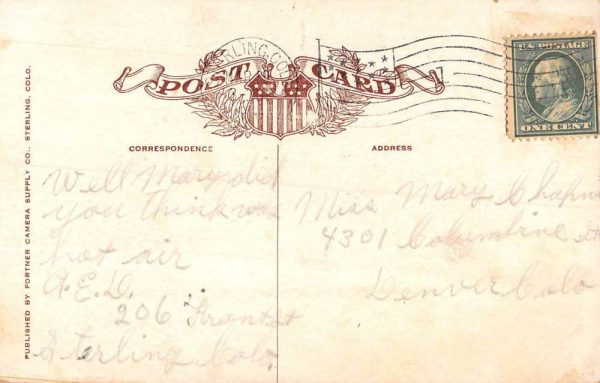 STERLING, COLO.
POST CARD
U.S. POSTAGE
ONE CENT
CORRESPONDENCE
ADDRESS
PUBLISHED BY FORTNER CAMERA SUPPLY CO., STERLING, COLO.
Well Mary did
you think was
hot air
A.E.D.
206 Front st
Sterling Colo
Miss Mary
4301 Columbine St
Denver Colo